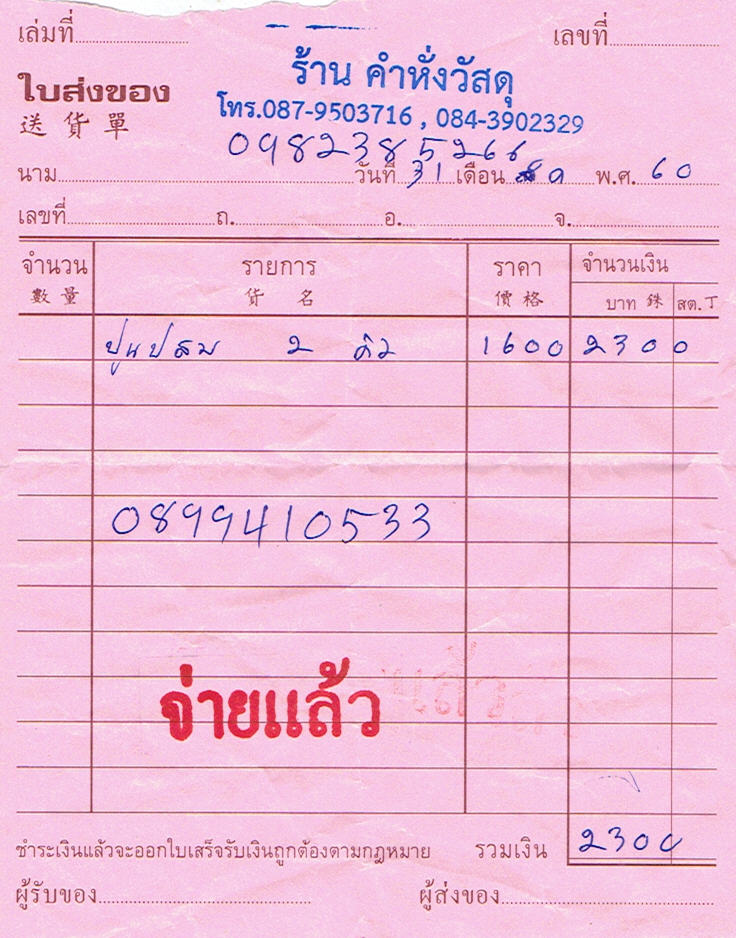 เล่มที่ เลขที่
ร้าน คำหั่งวัสดุ
ใบส่งของ
โทร.087-9503716 , 084-3902329
送 貨 單
0982385266
นาม วันที่ 31 เดือน พ.ศ. 60
เลขที่ ถ. อ. จ.
จำนวน รายการ ราคา จำนวนเงิน
數 量 貨 名 價 格 บาท 銖 สต. 丁
ปูนปสม 2 คิว 1600 2300
0899410533
จ่ายแล้ว
ชำระเงินแล้วจะออกใบเสร็จรับเงินถูกต้องตามกฎหมาย รวมเงิน 2300
ผู้รับของ ผู้ส่งของ